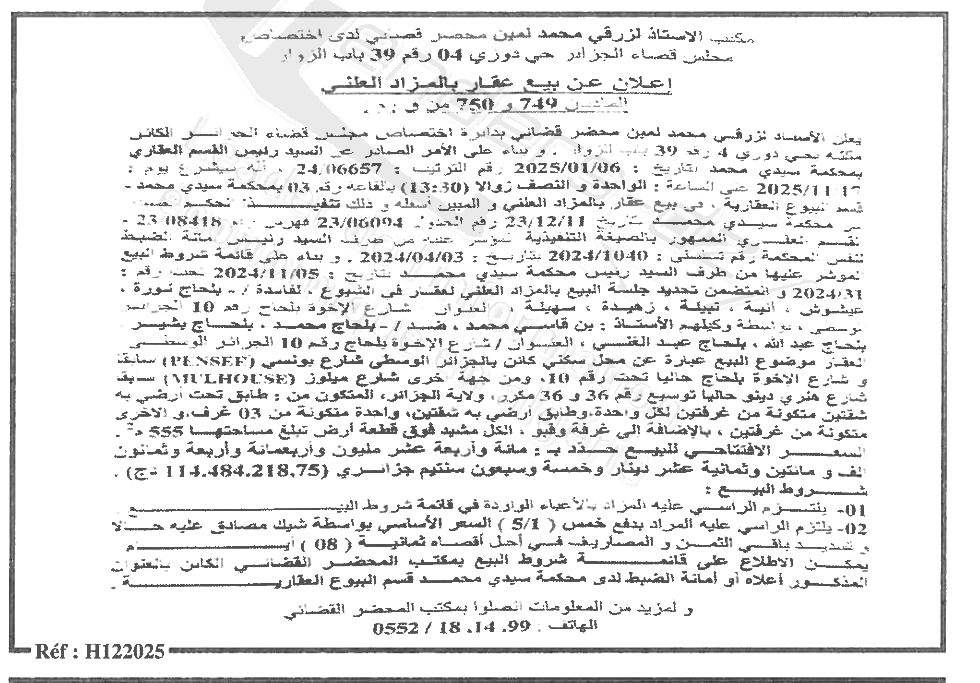 مكتب الاستاذ لزرقي محمد لمين محضر قضائي لدى اختصاص
مجلس قضاء الجزائر حي دوزي 04 رقم 39 باب الزوار
إعلان عن بيع عقار بالمزاد العلني
المادتين 749 و 750 من ق إ م إ
يعلن الأستاذ لزرقي محمد لمين محضر قضائي بدائرة اختصاص مجلس قضاء الجزائر الكائن
مكتبه بحي دوزي 4 رقم 39 باب الزوار . و بناء على الأمر الصادر عن السيد رئيس القسم العقاري
بمحكمة سيدي محمد بتاريخ : 2025/01/06 رقم الترتيب : 24/06657 . أنه سيشرع يوم :
2025/11/17 على الساعة : الواحدة و النصف زوالا (13:30) بالقاعة رقم 03 بمحكمة سيدي محمد -
قسم البيوع العقارية ، في بيع عقار بالمزاد العلني و المبين أسفله و ذلك تنفيذا للحكم
محكمة سيدي محمد بتاريخ 23/12/11 رقم الجدول 23/06094 فهرس رقم 23/08418 -
القسم العقاري الممهور بالصيغة التنفيذية من طرف السيد رئيس أمانة الضبط
لنفس المحكمة رقم تسلسلي : 2024/1040 بتاريخ : 2024/04/03 . و بناء على قائمة شروط البيع
المؤشر عليها من طرف السيد رئيس محكمة سيدي محمد بتاريخ : 2024/11/05 تحت رقم :
2024/31 و المتضمن تحديد جلسة البيع بالمزاد العلني لعقار في الشيوع ، لفائدة /- بلحاج نورة ،
عيشوش ، أنيسة ، نبيلة ، زهيدة ، سهيلة العنوان شارع الإخوة بلحاج رقم 10 الجزائر
الوسطى ، بواسطة وكيلهم الأستاذ : بن قاسي محمد ، ضد /- بلحاج محمد ، بلحاج بشير ،
بلحاج عبد الله ، بلحاج عبد الغني ، العنوان / شارع الإخوة بلحاج رقم 10 الجزائر الوسطى
العقار موضوع البيع عبارة عن محل سكني كائن بالجزائر الوسطى شارع يونسي (PENSEE) سابقا
و شارع الإخوة بلحاج حاليا تحت رقم 10، ومن جهة أخرى شارع ميلوز (MULHOUSE) سابقا
شارع هنري دينو حاليا توسيع رقم 36 و 36 مكرر، ولاية الجزائر، المتكون من : طابق تحت أرضي به
شقتين متكونة من غرفتين لكل واحدة،وطابق أرضي به شقتين، واحدة متكونة من 03 غرف، و الاخرى
متكونة من غرفتين ، بالاضافة الى غرفة وقبو ، الكل مشيد فوق قطعة أرض تبلغ مساحتها 555 م2 .
السعر الافتتاحي للبيع حدد بـ : مائة وأربعة عشر مليون وأربعمائة وأربعة وثمانون
الف و مائتين وثمانية عشر دينار وخمسة وسبعون سنتيم جزائري (114.484.218,75 دج) .
شروط البيع :
01- يلتزم الراسي عليه المزاد بالأعباء الواردة في قائمة شروط البيع .
02- يلتزم الراسي عليه المزاد بدفع خمس ( 5/1 ) السعر الأساسي بواسطة شيك مصادق عليه حالا
و تسديد باقي الثمن و المصاريف في أجل أقصاه ثمانية ( 08 ) أيام
يمكن الاطلاع على قائمة شروط البيع بمكتب المحضر القضائي الكائن بالعنوان
المذكور أعلاه أو أمانة الضبط لدى محكمة سيدي محمد قسم البيوع العقارية .
و لمزيد من المعلومات اتصلوا بمكتب المحضر القضائي
الهاتف : 0552 / 18 .14 .99
Réf : H122025